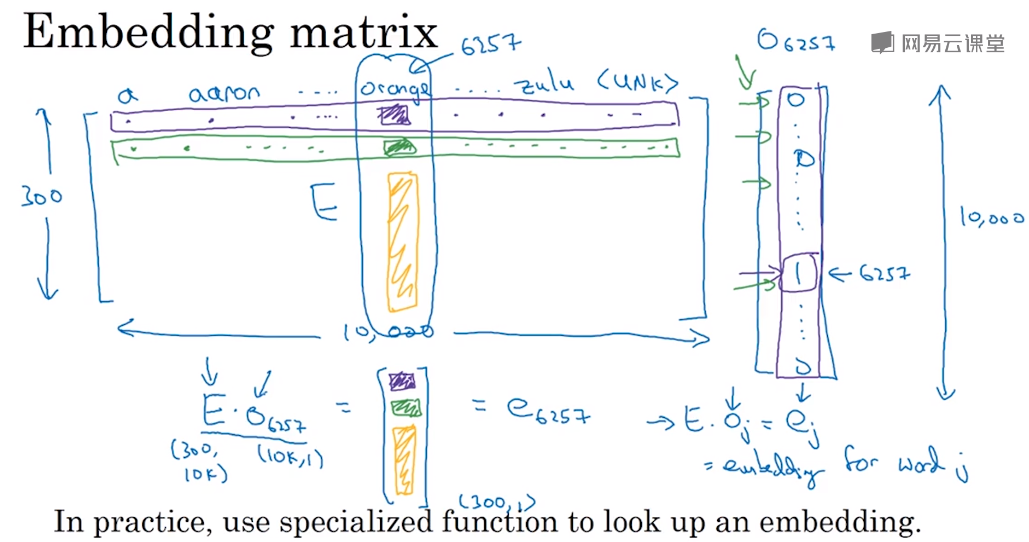 Embedding matrix
6257
O6257
网易云课堂
a aaron ..... orange ..... zulu <UNK>
300
E
10,000
0
0
1
← 6257
0
10,000
E · O6257 = = e6257
(300, 10K) (10K, 1)
(300, 1)
→ E. Oj = ej
= embedding for word j
In practice, use specialized function to look up an embedding.